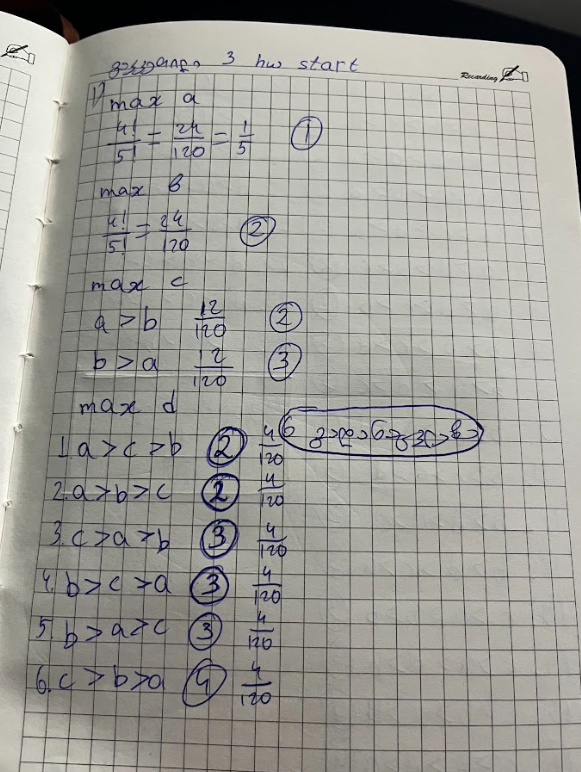 3 hw start
Recording
1) max a
4!/5! = 24/120 = 1/5 ①
max b
4!/5! = 24/120 ②
max c
a > b 12/120 ②
b > a 12/120 ③
max d
1. a > c > b ② 4/120
2. a > b > c ② 4/120
3. c > a > b ③ 4/120
4. b > c > a ③ 4/120
5. b > a > c ③ 4/120
6. c > b > a ④ 4/120